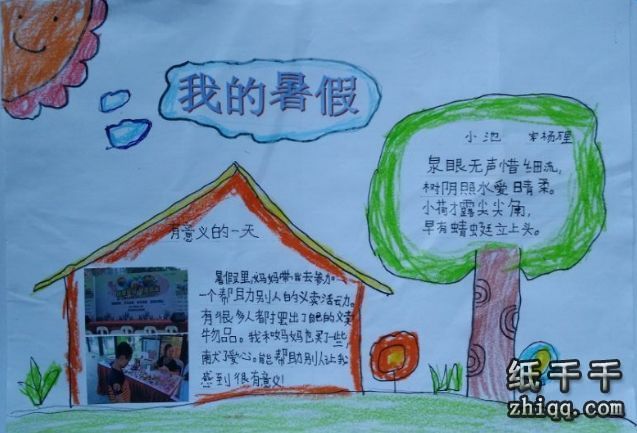 我的暑假
小池 宋杨理
泉眼无声惜细流,
树阴照水爱晴柔。
小荷才露尖尖角,
早有蜻蜓立上头。
有意义的一天
暑假里,妈妈带我去参加
一个帮助别人的义卖活动。
有很多人都摆出了自己的义卖
物品。我和妈妈也买了一些,
献了爱心。能帮助别人让我
感到很有意义!
纸千千
zhiqq.com